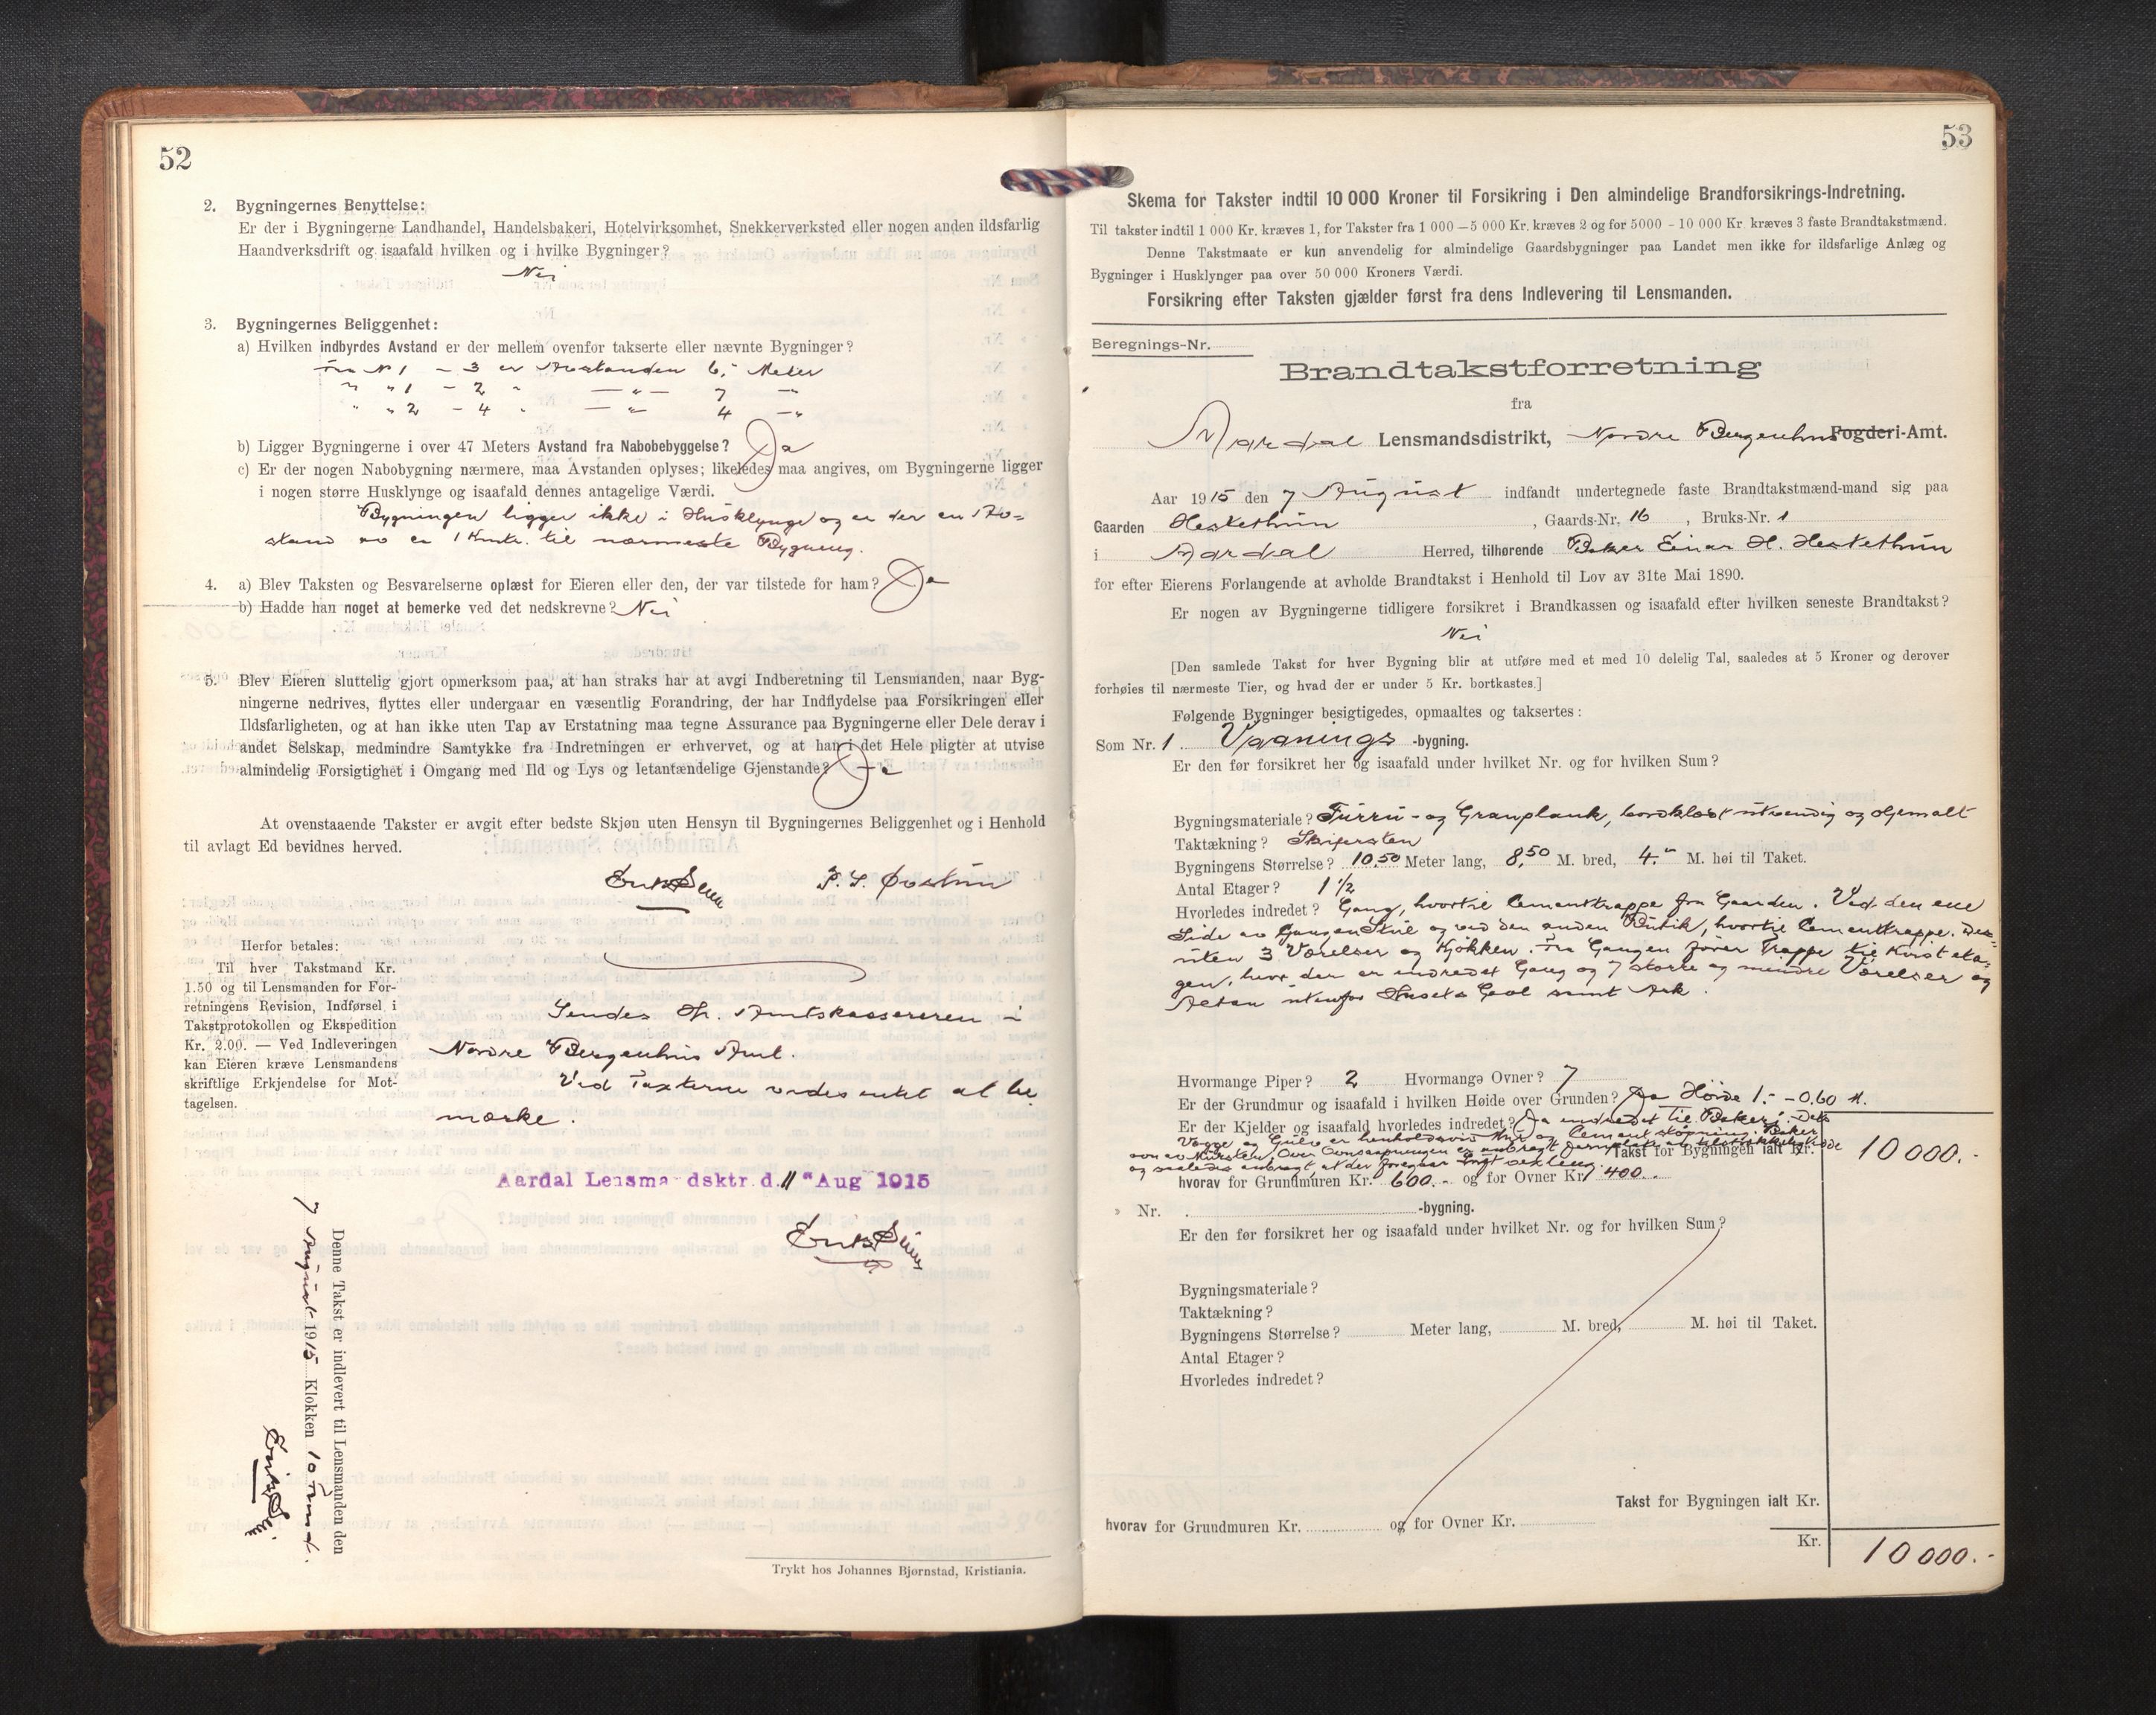 52
2. Bygningernes Benyttelse:
Er der i Bygningerne Landhandel, Handelsbakeri, Hotelvirksomhet, Snekkerverksted eller nogen anden ildsfarlig
Haandverksdrift og isaafald hvilken og i hvilke Bygninger?
Nei
3. Bygningernes Beliggenhet:
a) Hvilken indbyrdes Avstand er der mellem ovenfor takserte eller nævnte Bygninger?
Fra No 1 - 3 er Avstanden 6,- Meter
" " 1 - 2 " — " — 7 — "
" " 2 - 4 " — " — 4 — "
b) Ligger Bygningerne i over 47 Meters Avstand fra Nabobebyggelse? Ja
c) Er der nogen Nabobygning nærmere, maa Avstanden oplyses; likeledes maa angives, om Bygningerne ligger
i nogen større Husklynge og isaafald dennes antagelige Værdi.
Bygningen ligger ikke i Husklynge og er der en Av=
stand av ca 1 Kmtr. til nærmeste Bygning.
4. a) Blev Taksten og Besvarelserne oplæst for Eieren eller den, der var tilstede for ham? Ja
b) Hadde han noget at bemerke ved det nedskrevne? Nei
5. Blev Eieren sluttelig gjort opmerksom paa, at han straks har at avgi Indberetning til Lensmanden, naar Byg-
ningerne nedrives, flyttes eller undergaar en væsentlig Forandring, der har Indflydelse paa Forsikringen eller
Ildsfarligheten, og at han ikke uten Tap av Erstatning maa tegne Assurance paa Bygningerne eller Dele derav i
andet Selskap, medmindre Samtykke fra Indretningen er erhvervet, og at han i det Hele pligter at utvise
almindelig Forsigtighet i Omgang med Ild og Lys og letantændelige Gjenstande? Ja
At ovenstaaende Takster er avgit efter bedste Skjøn uten Hensyn til Bygningernes Beliggenhet og i Henhold
til avlagt Ed bevidnes herved.
Øvstun
Herfor betales:
Til hver Takstmand Kr.
1.50 og til Lensmanden for For-
retningens Revision, Indførsel i
Takstprotokollen og Ekspedition
Kr. 2.00. — Ved Indleveringen
kan Eieren kræve Lensmandens
skriftlige Erkjendelse for Mot-
tagelsen.
Sendes Hr. Amtskassereren i
Nordre Bergenhus Amt.
Ved Taxterne vides intet at be
mærke.
Aardal Lensma dsktr. d. 11 " Aug 1915
Denne Takst er indlevert til Lensmanden den
7 August 1915 Klokken 10 Formd.
Trykt hos Johannes Bjørnstad, Kristiania.
53
Skema for Takster indtil 10 000 Kroner til Forsikring i Den almindelige Brandforsikrings-Indretning.
Til takster indtil 1 000 Kr. kræves 1, for Takster fra 1 000 —5 000 Kr. kræves 2 og for 5000 - 10 000 Kr. kræves 3 faste Brandtakstmænd.
Denne Takstmaate er kun anvendelig for almindelige Gaardsbygninger paa Landet men ikke for ildsfarlige Anlæg og
Bygninger i Husklynger paa over 50 000 Kroners Værdi.
Forsikring efter Taksten gjælder først fra dens Indlevering til Lensmanden.
Beregnings-Nr.
Brandtakstforretning
fra
Aardal Lensmandsdistrikt, Nordre Bergenhus Fogderi-Amt.
Aar 1915 den 7 August indfandt undertegnede faste Brandtakstmænd-mand sig paa
Gaarden Hestethun, Gaards-Nr. 16, Bruks-Nr. 1
i Aardal Herred, tilhørende Baker Einar H. Hestethun
for efter Eierens Forlangende at avholde Brandtakst i Henhold til Lov av 31te Mai 1890.
Er nogen av Bygningerne tidligere forsikret i Brandkassen og isaafald efter hvilken seneste Brandtakst?
Nei
[Den samlede Takst for hver Bygning blir at utføre med et med 10 delelig Tal, saaledes at 5 Kroner og derover
forhøies til nærmeste Tier, og hvad der er under 5 Kr. bortkastes.]
Følgende Bygninger besigtigedes, opmaaltes og taksertes:
Som Nr. 1. Vaanings -bygning.
Er den før forsikret her og isaafald under hvilket Nr. og for hvilken Sum?
Bygningsmateriale? Furru- og Granplank, bordklædt utvendig og oljemalt
Taktækning? Skifersten
Bygningens Størrelse? 10.50 Meter lang, 8,50 M. bred, 4.- M. høi til Taket.
Antal Etager? 1 1/2
Hvorledes indredet? Gang, hvortil Cementtrappe fra Gaarden. Ved den ene
Side av Gangen Skul og ved den anden Butik, hvortil Cementtrappe. Des=
uten 3 Værelser og Kjøkken. Fra Gangen fører Trappe til Kvisteta-
gen, hvor der er indredet Gang og 7 større og mindre Værelser og
Altan utenfor Husets Gavl samt Ark.
Hvormange Piper? 2 Hvormange Ovner? 7
Er der Grundmur og isaafald i hvilken Høide over Grunden? Ja Høide 1.- - 0,60 M.
Er der Kjelder og isaafald hvorledes indredet? Ja indredet til Bakeri. Dets
Vægge og Gulv er henholdsvis Mur og Cementstøpning. Baker
ovn av Mursten. Over Ovnsaapningen er anbragt Jernplate
og saaledes anbragt, at der foregaar
Takst for Bygningen ialt Kr. 10 000.-
hvorav for Grundmuren Kr. 600.- og for Ovner Kr. 400.-
» Nr. -bygning.
Er den før forsikret her og isaafald under hvilket Nr. og for hvilken Sum?
Bygningsmateriale?
Taktækning?
Bygningens Størrelse? Meter lang, M. bred, M. høi til Taket.
Antal Etager?
Hvorledes indredet?
Takst for Bygningen ialt Kr.
hvorav for Grundmuren Kr. og for Ovner Kr.
Kr. 10 000.-